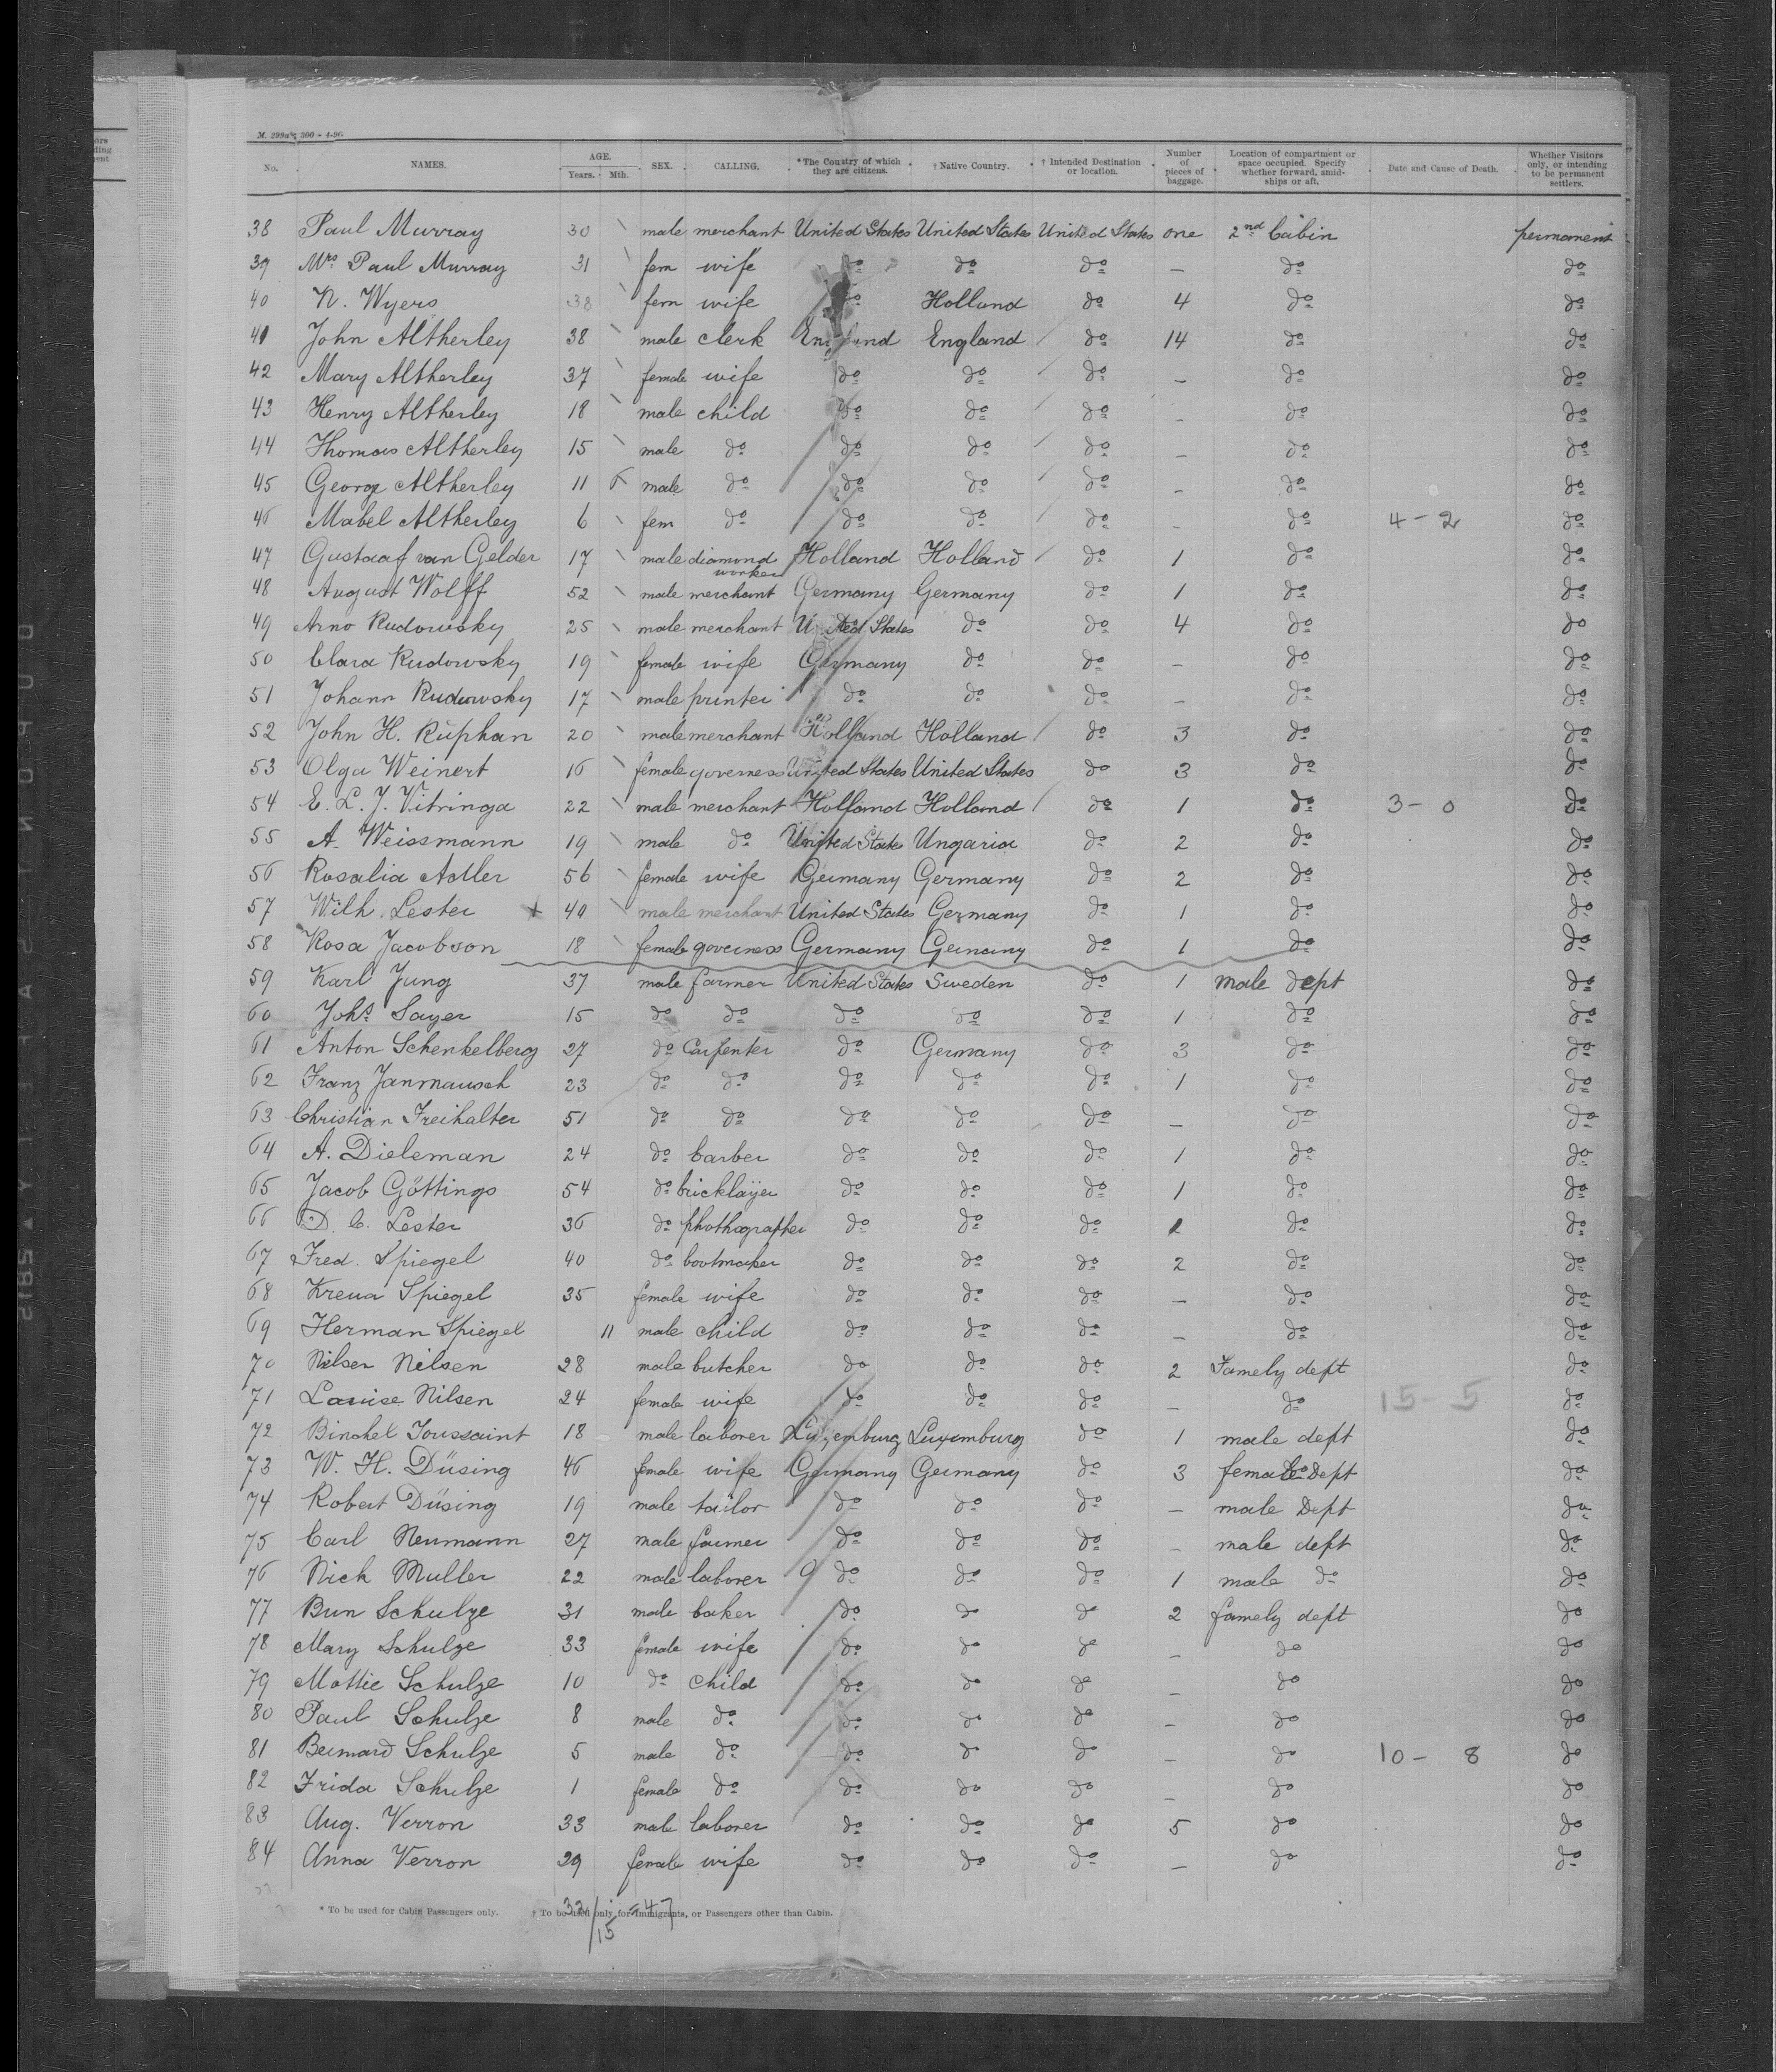 M. 299a 300 - 4-96.
No. NAMES. AGE. Years. Mth. SEX. CALLING. *The Country of which they are citizens. † Native Country. † Intended Destination or location. Number of pieces of baggage. Location of compartment or space occupied. Specify whether forward, amidships or aft. Date and Cause of Death. Whether Visitors only, or intending to be permanent settlers.
38 Paul Murray 30 male merchant United States United States United States one 2nd Cabin permanent
39 Mrs Paul Murray 31 fem wife do do do — do do
40 N. Wyers 38 fem wife do Holland do 4 do do
41 John Altherley 38 male clerk England England do 14 do do
42 Mary Altherley 37 female wife do do do — do do
43 Henry Altherley 18 male child do do do — do do
44 Thomas Altherley 15 male do do do do — do do
45 George Altherley 11 6 male do do do do — do do
46 Mabel Altherley 6 fem do do do do — do 4-2 do
47 Gustaaf van Gelder 17 male diamond worker Holland Holland do 1 do do
48 August Wolff 52 male merchant Germany Germany do 1 do do
49 Arno Rudowsky 25 male merchant United States do do 4 do do
50 Clara Rudowsky 19 female wife Germany do do — do do
51 Johann Rudowsky 17 male printer do do do — do do
52 John H. Ruphan 20 male merchant Holland Holland do 3 do do
53 Olga Weinert 16 female governess United States United States do 3 do do
54 E. L. J. Vitringa 22 male merchant Holland Holland do 1 do 3-0 do
55 A. Weissmann 19 male do United States Ungaria do 2 do do
56 Rosalia Adler 56 female wife Germany Germany do 2 do do
57 Wilh. Lester + 40 male merchant United States Germany do 1 do do
58 Rosa Jacobson 18 female governess Germany Germany do 1 do do
59 Karl Jung 37 male farmer United States Sweden do 1 male dept do
60 Johs Sayer 15 do do do do do 1 do do
61 Anton Schenkelberg 27 do Carpenter do Germany do 3 do do
62 Franz Janmausch 23 do do do do do 1 do do
63 Christian Freihalter 51 do do do do do — do do
64 A. Dieleman 24 do barber do do do 1 do do
65 Jacob Göttings 54 do bricklaÿer do do do 1 do do
66 D. C. Lester 36 do phothographer do do do do do
67 Fred. Spiegel 40 do bootmaker do do do 2 do do
68 Krena Spiegel 35 female wife do do do — do do
69 Herman Spiegel 11 male child do do do — do do
70 Nilsen Nilsen 28 male butcher do do do 2 Famely dept do
71 Louise Nilsen 24 female wife do do do — do 15-5 do
72 Binchel Toussaint 18 male laborer Luxemburg Luxemburg do 1 male dept do
73 W. H. Düsing 46 female wife Germany Germany do 3 female Dept do
74 Robert Düsing 19 male tailor do do do — male Dept do
75 Carl Neumann 27 male farmer do do do — male dept do
76 Nick Muller 22 male laborer do do do 1 male do do
77 Bun Schulze 31 male baker do do do 2 famely dept do
78 Mary Schulze 33 female wife do do do — do do
79 Mattie Schulze 10 do child do do do — do do
80 Paul Schulze 8 male do do do do — do do
81 Bernard Schulze 5 male do do do do — do 10-8 do
82 Frida Schulze 1 female do do do do — do do
83 Aug. Verron 33 male laborer do do do 5 do do
84 Anna Verron 29 female wife do do do — do do
* To be used for Cabin Passengers only. † To be used only for Immigrants, or Passengers other than Cabin.
32/15 = 47